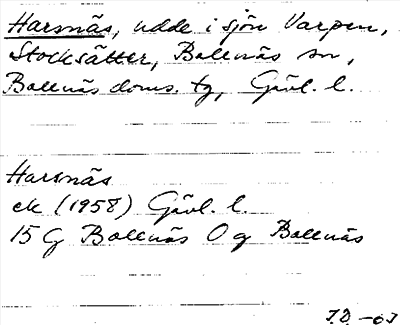 Harsnäs, udde i sjön Varpen,
Stocksätter, Bollnäs sn,
Bollnäs doms. tg, Gävl. l.
Harsnäs
ek (1958) Gävl. l.
15 G Bollnäs 0 g Bollnäs
J.D. -63